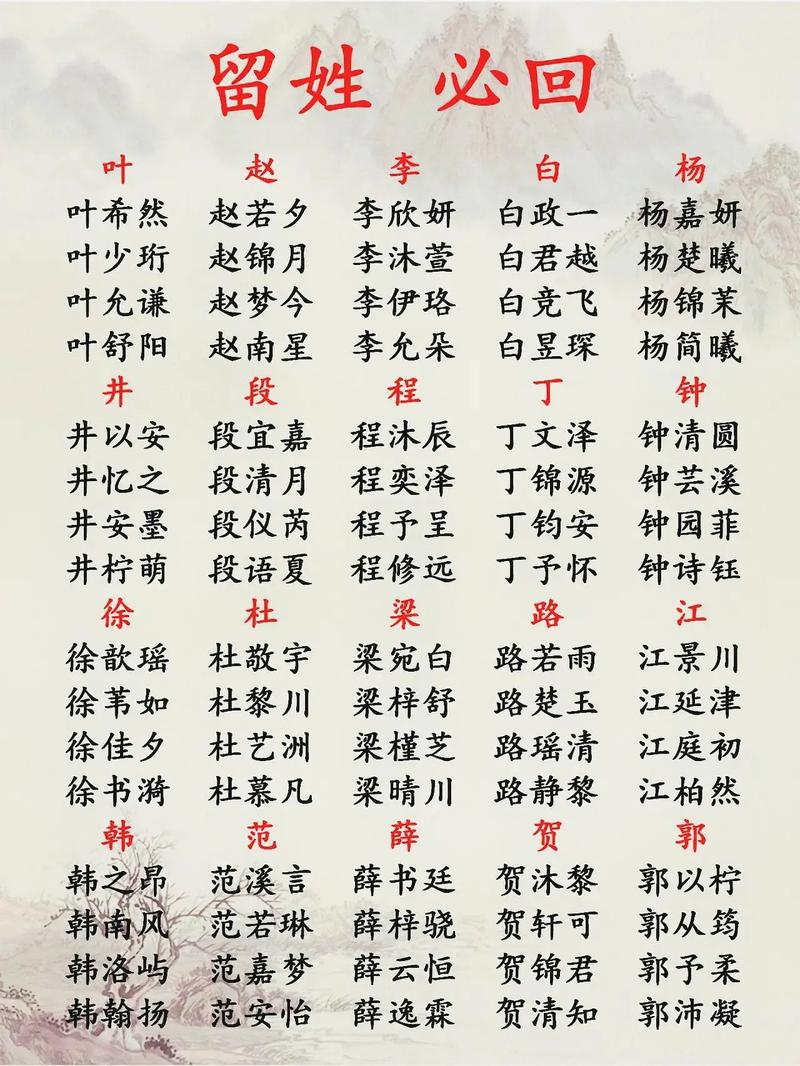 留姓 必回
叶 赵 李 白 杨
叶希然 赵若夕 李欣妍 白政一 杨嘉妍
叶少珩 赵锦月 李沐萱 白君越 杨楚曦
叶允谦 赵梦今 李伊珞 白竞飞 杨锦茉
叶舒阳 赵南星 李允朵 白昱琛 杨简曦
井 段 程 丁 钟
井以安 段宜嘉 程沐辰 丁文泽 钟清圆
井忆之 段清月 程奕泽 丁锦源 钟芸溪
井安墨 段仪芮 程予呈 丁钧安 钟园菲
井柠萌 段语夏 程修远 丁予怀 钟诗钰
徐 杜 梁 路 江
徐歆瑶 杜敬宇 梁宛白 路若雨 江景川
徐苇如 杜黎川 梁梓舒 路楚玉 江延津
徐佳夕 杜艺洲 梁槿芝 路瑶清 江庭初
徐书漪 杜慕凡 梁晴川 路静黎 江柏然
韩 范 薛 贺 郭
韩之昂 范溪言 薛书廷 贺沐黎 郭以柠
韩南风 范若琳 薛梓骁 贺轩可 郭从筠
韩洛屿 范嘉梦 薛云恒 贺锦君 郭予柔
韩翰扬 范安怡 薛逸霖 贺清知 郭沛凝